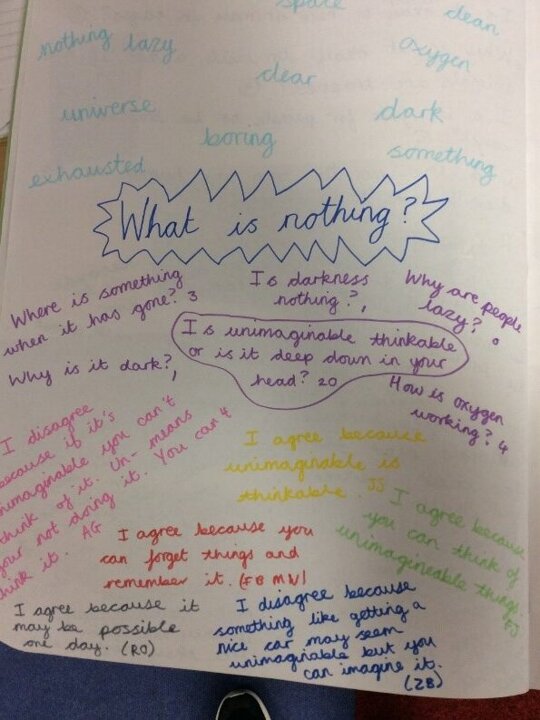 space
clean
nothing lazy
oxygen
clear
universe
dark
boring
something
exhausted
What is nothing?
Where is something
when it has gone? 3
Is darkness
nothing?, 1
Why are people
lazy? 0
Why is it dark?, 1
Is unimaginable thinkable
or is it deep down in your
head? 20
How is oxygen
working? 4
I disagree
because if it's
unimaginable you can't
think of it. Un- means
your not doing it. You can't
think it. AG
I agree because
unimaginable is
thinkable. JS
I agree because
you can think of
unimagineable things
EJ
I agree because you
can forget things and
remember it. (FB MW)
I agree because it
may be possible
one day. (RO)
I disagree because
something like getting a
nice car may seem
unimaginable but you
can imagine it.
(ZB)